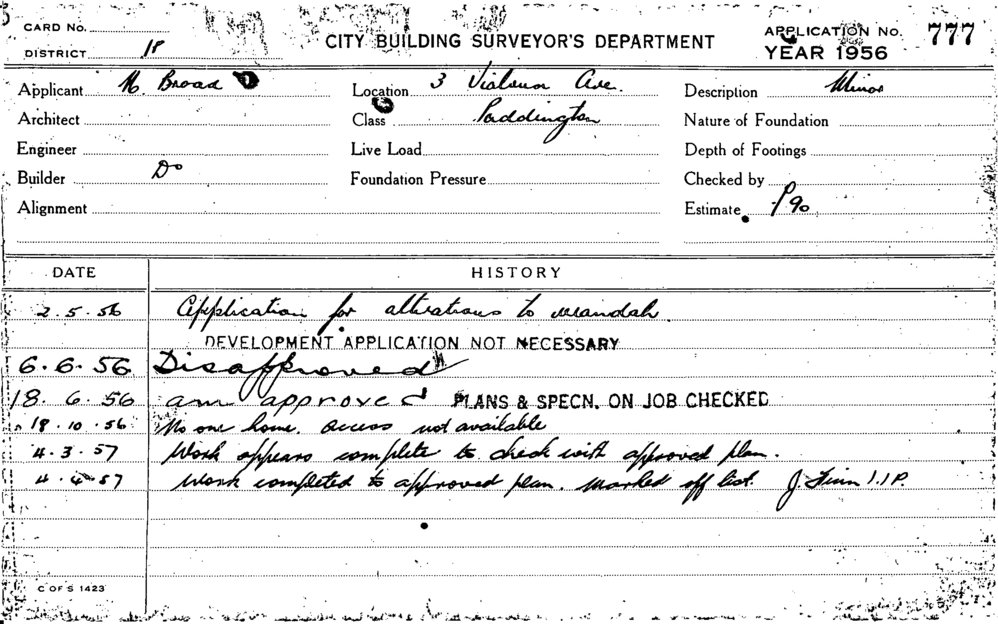 CARD No.
DISTRICT 1P
CITY BUILDING SURVEYOR'S DEPARTMENT
APPLICATION No. 777
YEAR 1956
Applicant Broad
Location 3 Ave.
Description Minor
Architect
Class Paddington
Nature of Foundation
Engineer
Live Load
Depth of Footings
Builder Do
Foundation Pressure
Checked by
Alignment
Estimate £90
DATE HISTORY
2.5.56 Application for alterations to verandah.
DEVELOPMENT APPLICATION NOT NECESSARY
6.6.56 Disapproved
18.6.56 am approved PLANS & SPECN. ON JOB CHECKED
18.10.56 No one home. Access not available
4.3.57 Work appears complete to check with approved plan.
4.4.57 Work completed to approved plan. Marked off list. J. Finn
C OF S 1423